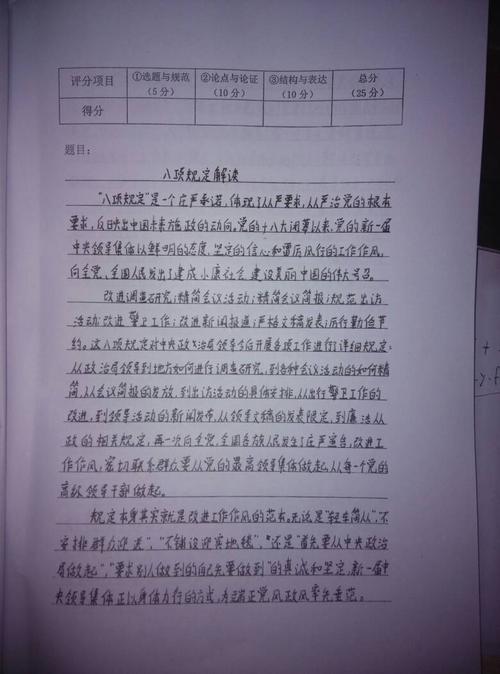 评分项目 ①选题与规范 ②论点与论证 ③结构与表达 总分
（5分） （10分） （10分） （25分）
得分
题目：
八项规定解读
“八项规定”是一个庄严承诺，体现了从严要求，从严治党的根本
要求，反映出中国未来施政的动向。党的十八大闭幕以来，党的新一届
中央领导集体以鲜明的态度、坚定的信心和雷厉风行的工作作风，
向全党、全国人民发出了建成小康社会 建设美丽中国的伟大号召。
改进调查研究；精简会议活动；精简会议简报；规范出访
活动；改进警卫工作；改进新闻报道；严格文稿发表；厉行勤俭节
约。这八项规定对中央政治局领导今后开展各项工作进行了详细规定：
从政治局领导到地方如何进行调查研究，到各种会议活动的如何精
简，从会议简报的发放，到出访活动的具体安排，从出行警卫工作的
改进，到领导活动的新闻发布，从领导文稿的发表限定，到廉洁从
政的相关规定，再一次向全党、全国各族人民发出了庄严宣告，改进工
作作风，密切联系群众要从党的最高领导集体做起，从每一个党的
高级领导干部做起。
规定本身其实就是改进工作作风的范本。无论是“轻车简从”，“不
安排群众迎送”，“不铺设迎宾地毯”，“还是“首先要从中央政治
局做起”，“要求别人做到的自己先要做到”的真诚和坚定，新一届中
央领导集体正以身体力行的方式，为端正党风政风率先垂范。